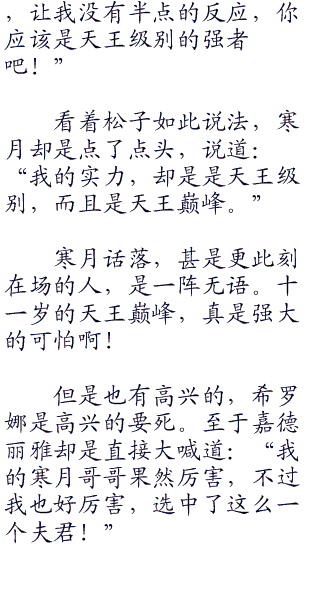 ，让我没有半点的反应，你
应该是天王级别的强者
吧！”
看着松子如此说法，寒
月却是点了点头，说道：
“我的实力，却是是天王级
别，而且是天王巅峰。”
寒月话落，甚是更此刻
在场的人，是一阵无语。十
一岁的天王巅峰，真是强大
的可怕啊！
但是也有高兴的，希罗
娜是高兴的要死。至于嘉德
丽雅却是直接大喊道：“我
的寒月哥哥果然厉害，不过
我也好厉害，选中了这么一
个夫君！”